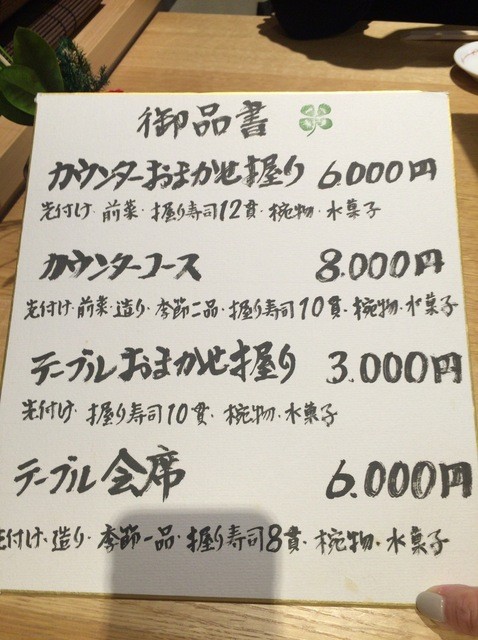 御品書
カウンターおまかせ握り 6.000円
先付け・前菜・握り寿司12貫・椀物・水菓子
カウンターコース 8.000円
先付け・前菜・造り・季節二品・握り寿司10貫・椀物・水菓子
テーブルおまかせ握り 3.000円
先付け・握り寿司10貫・椀物・水菓子
テーブル会席 6.000円
先付け・造り・季節一品・握り寿司8貫・椀物・水菓子